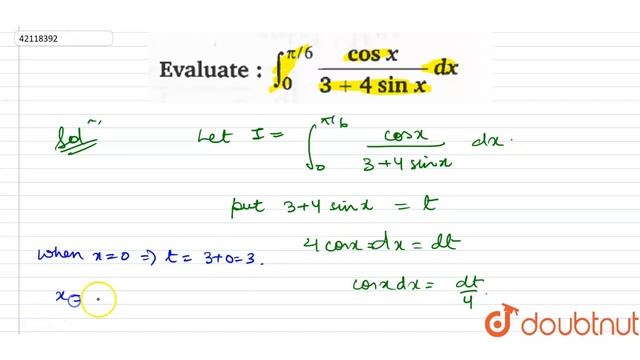 42118392
Evaluate : ∫₀^π/6 cos x / 3 + 4 sin x dx
Sol^n Let I = ∫₀^π/6 cosx / 3+4 sinx dx.
put 3+4 sinx = t
4 cosx dx = dt
When x=0 => t = 3+0=3.
cosx dx = dt/4.
x =
doubtnut